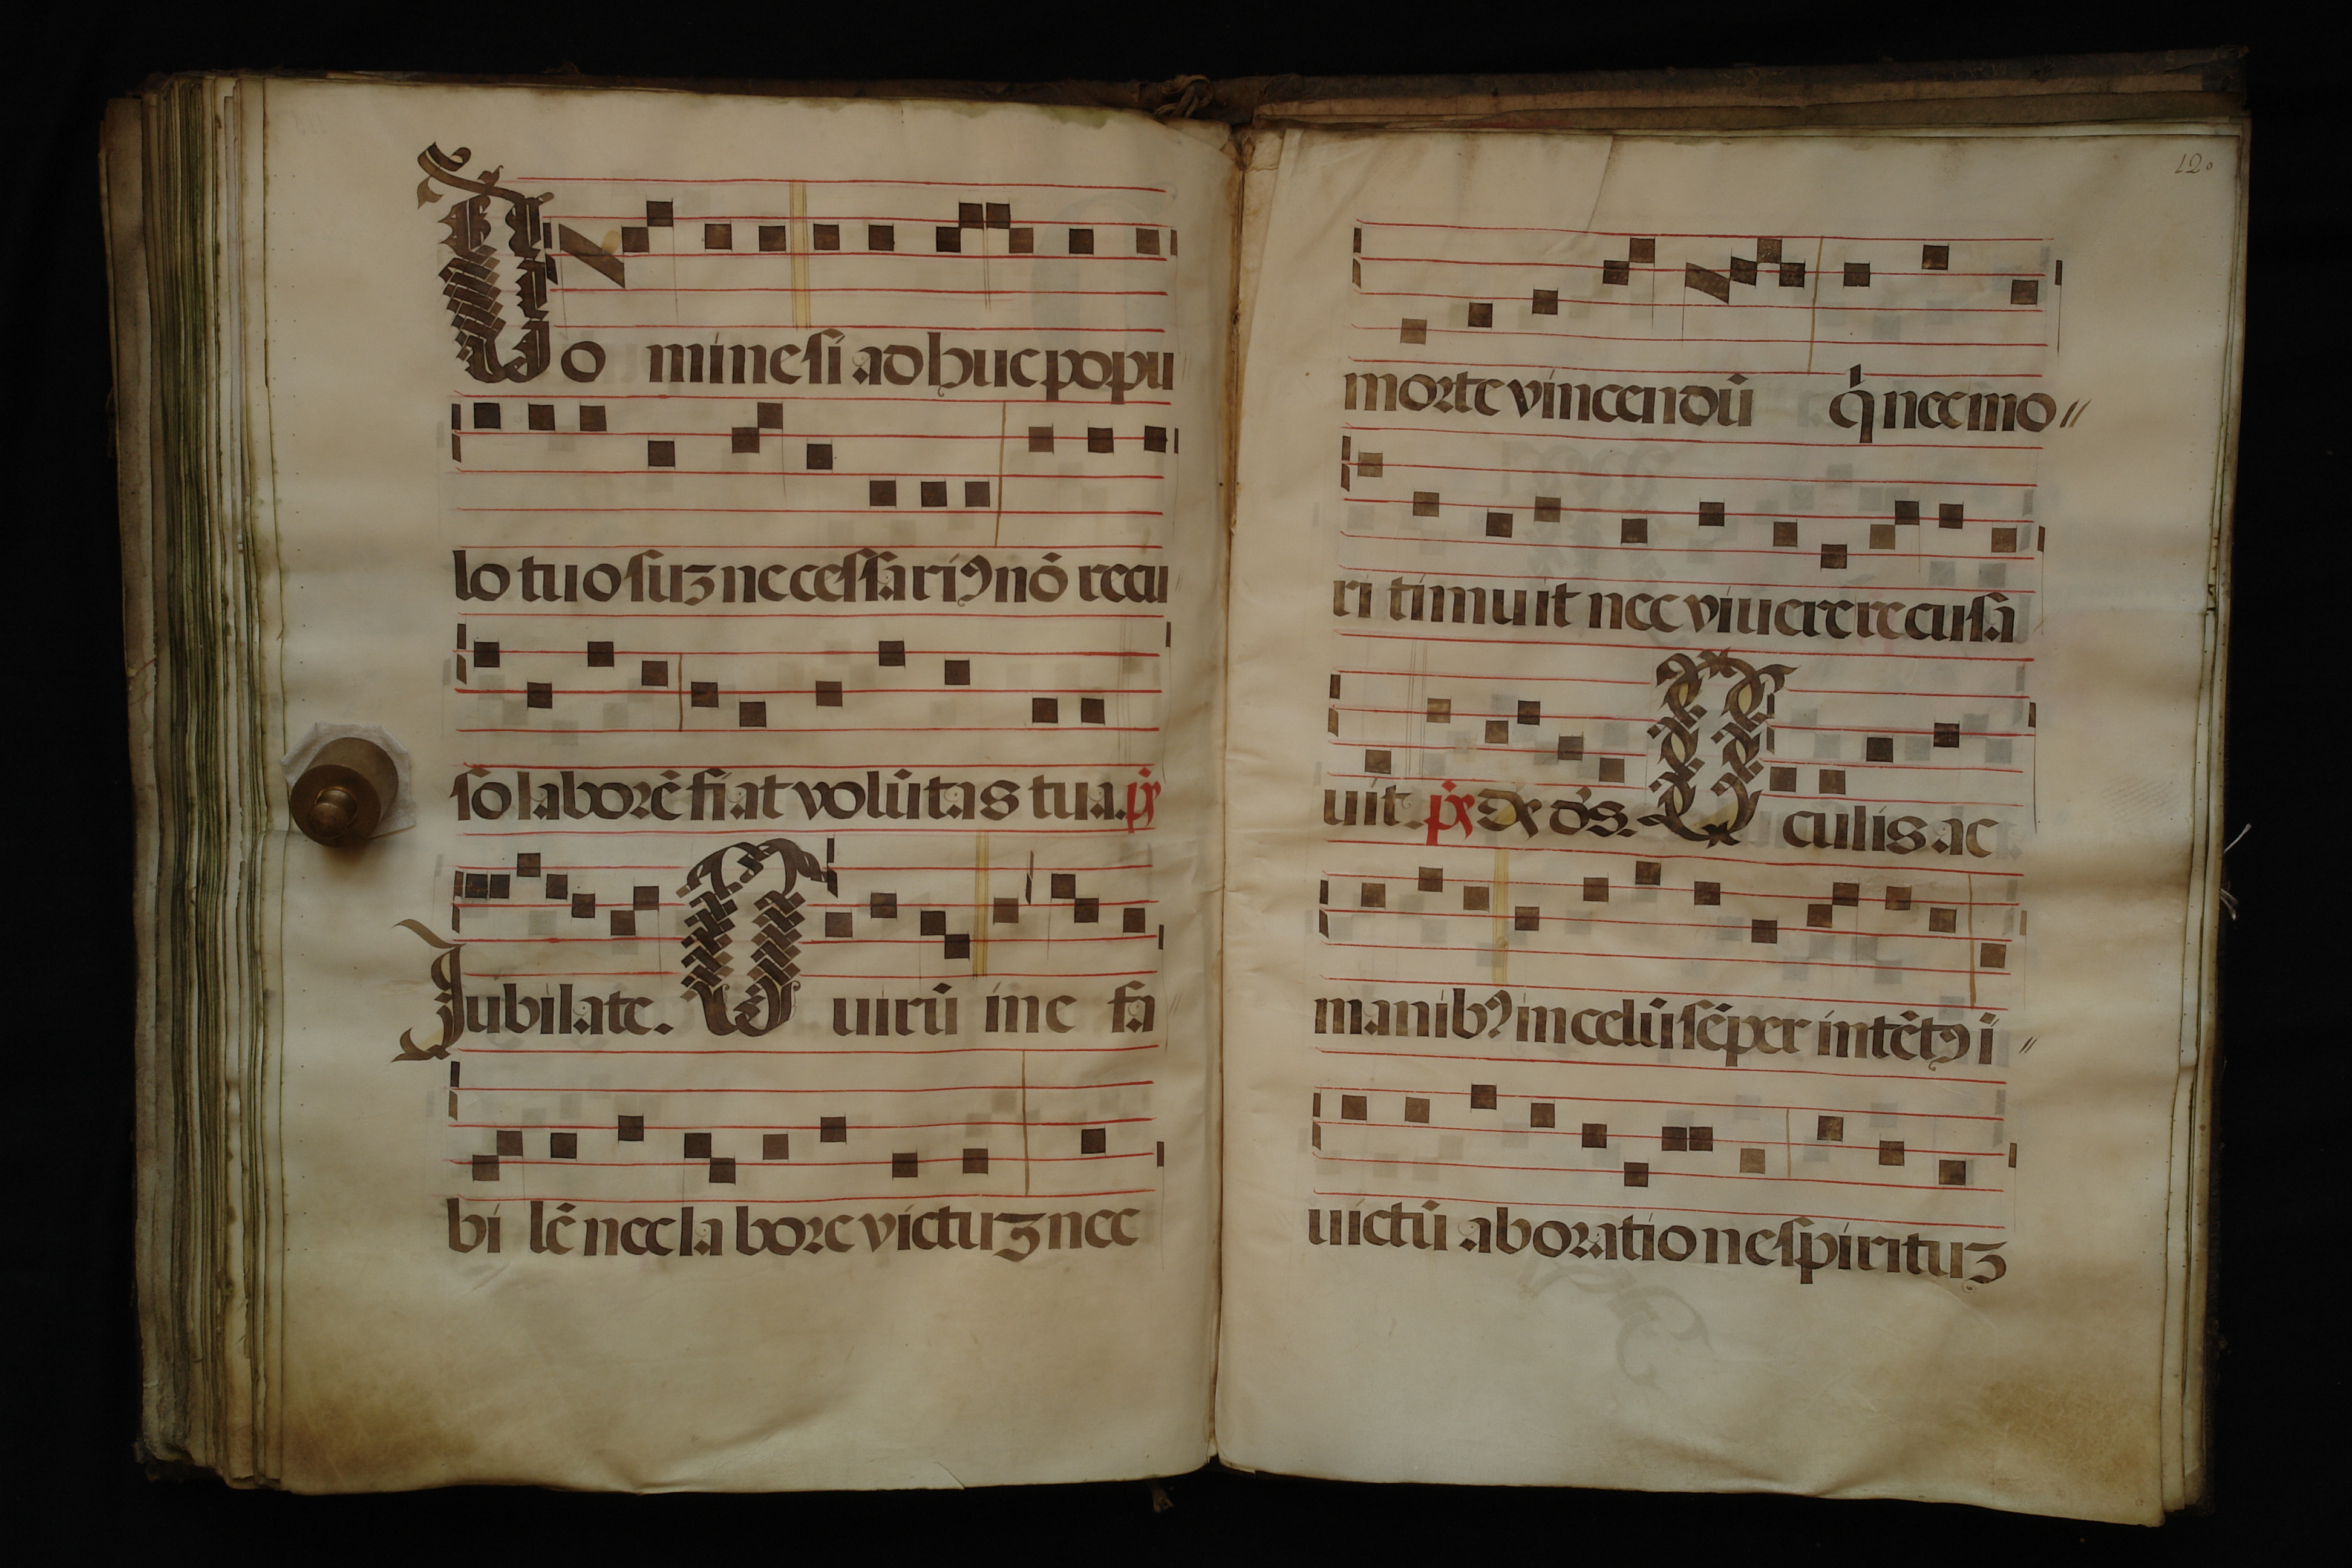 Do mine si ad huc popu
lo tuo suʒ neccessariꝯ nō recu
so laborē fiat volūtas tua. ps̄
Jubilate. O uirū ine fa
bi lē nec la bore victuʒ nec
120
morte vincendū q̇ nec mo〃
ri timuit nec viuere recusa
uit. ps̄ Dꝰ dꝰs. O culis ac
manibꝯ in celū sēper intētꝯ i〃
uictū ab oratione spirituʒ